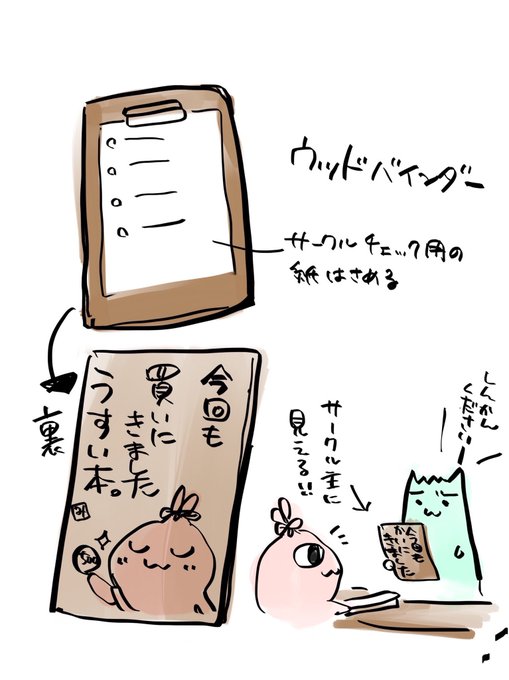 ウッドバインダー
サークルチェック用の
紙はさめる
裏
今回も
買いに
きました
うすい本。
500
サークル主に
見える!!
しんかん
ください
今回も
かいに
きました